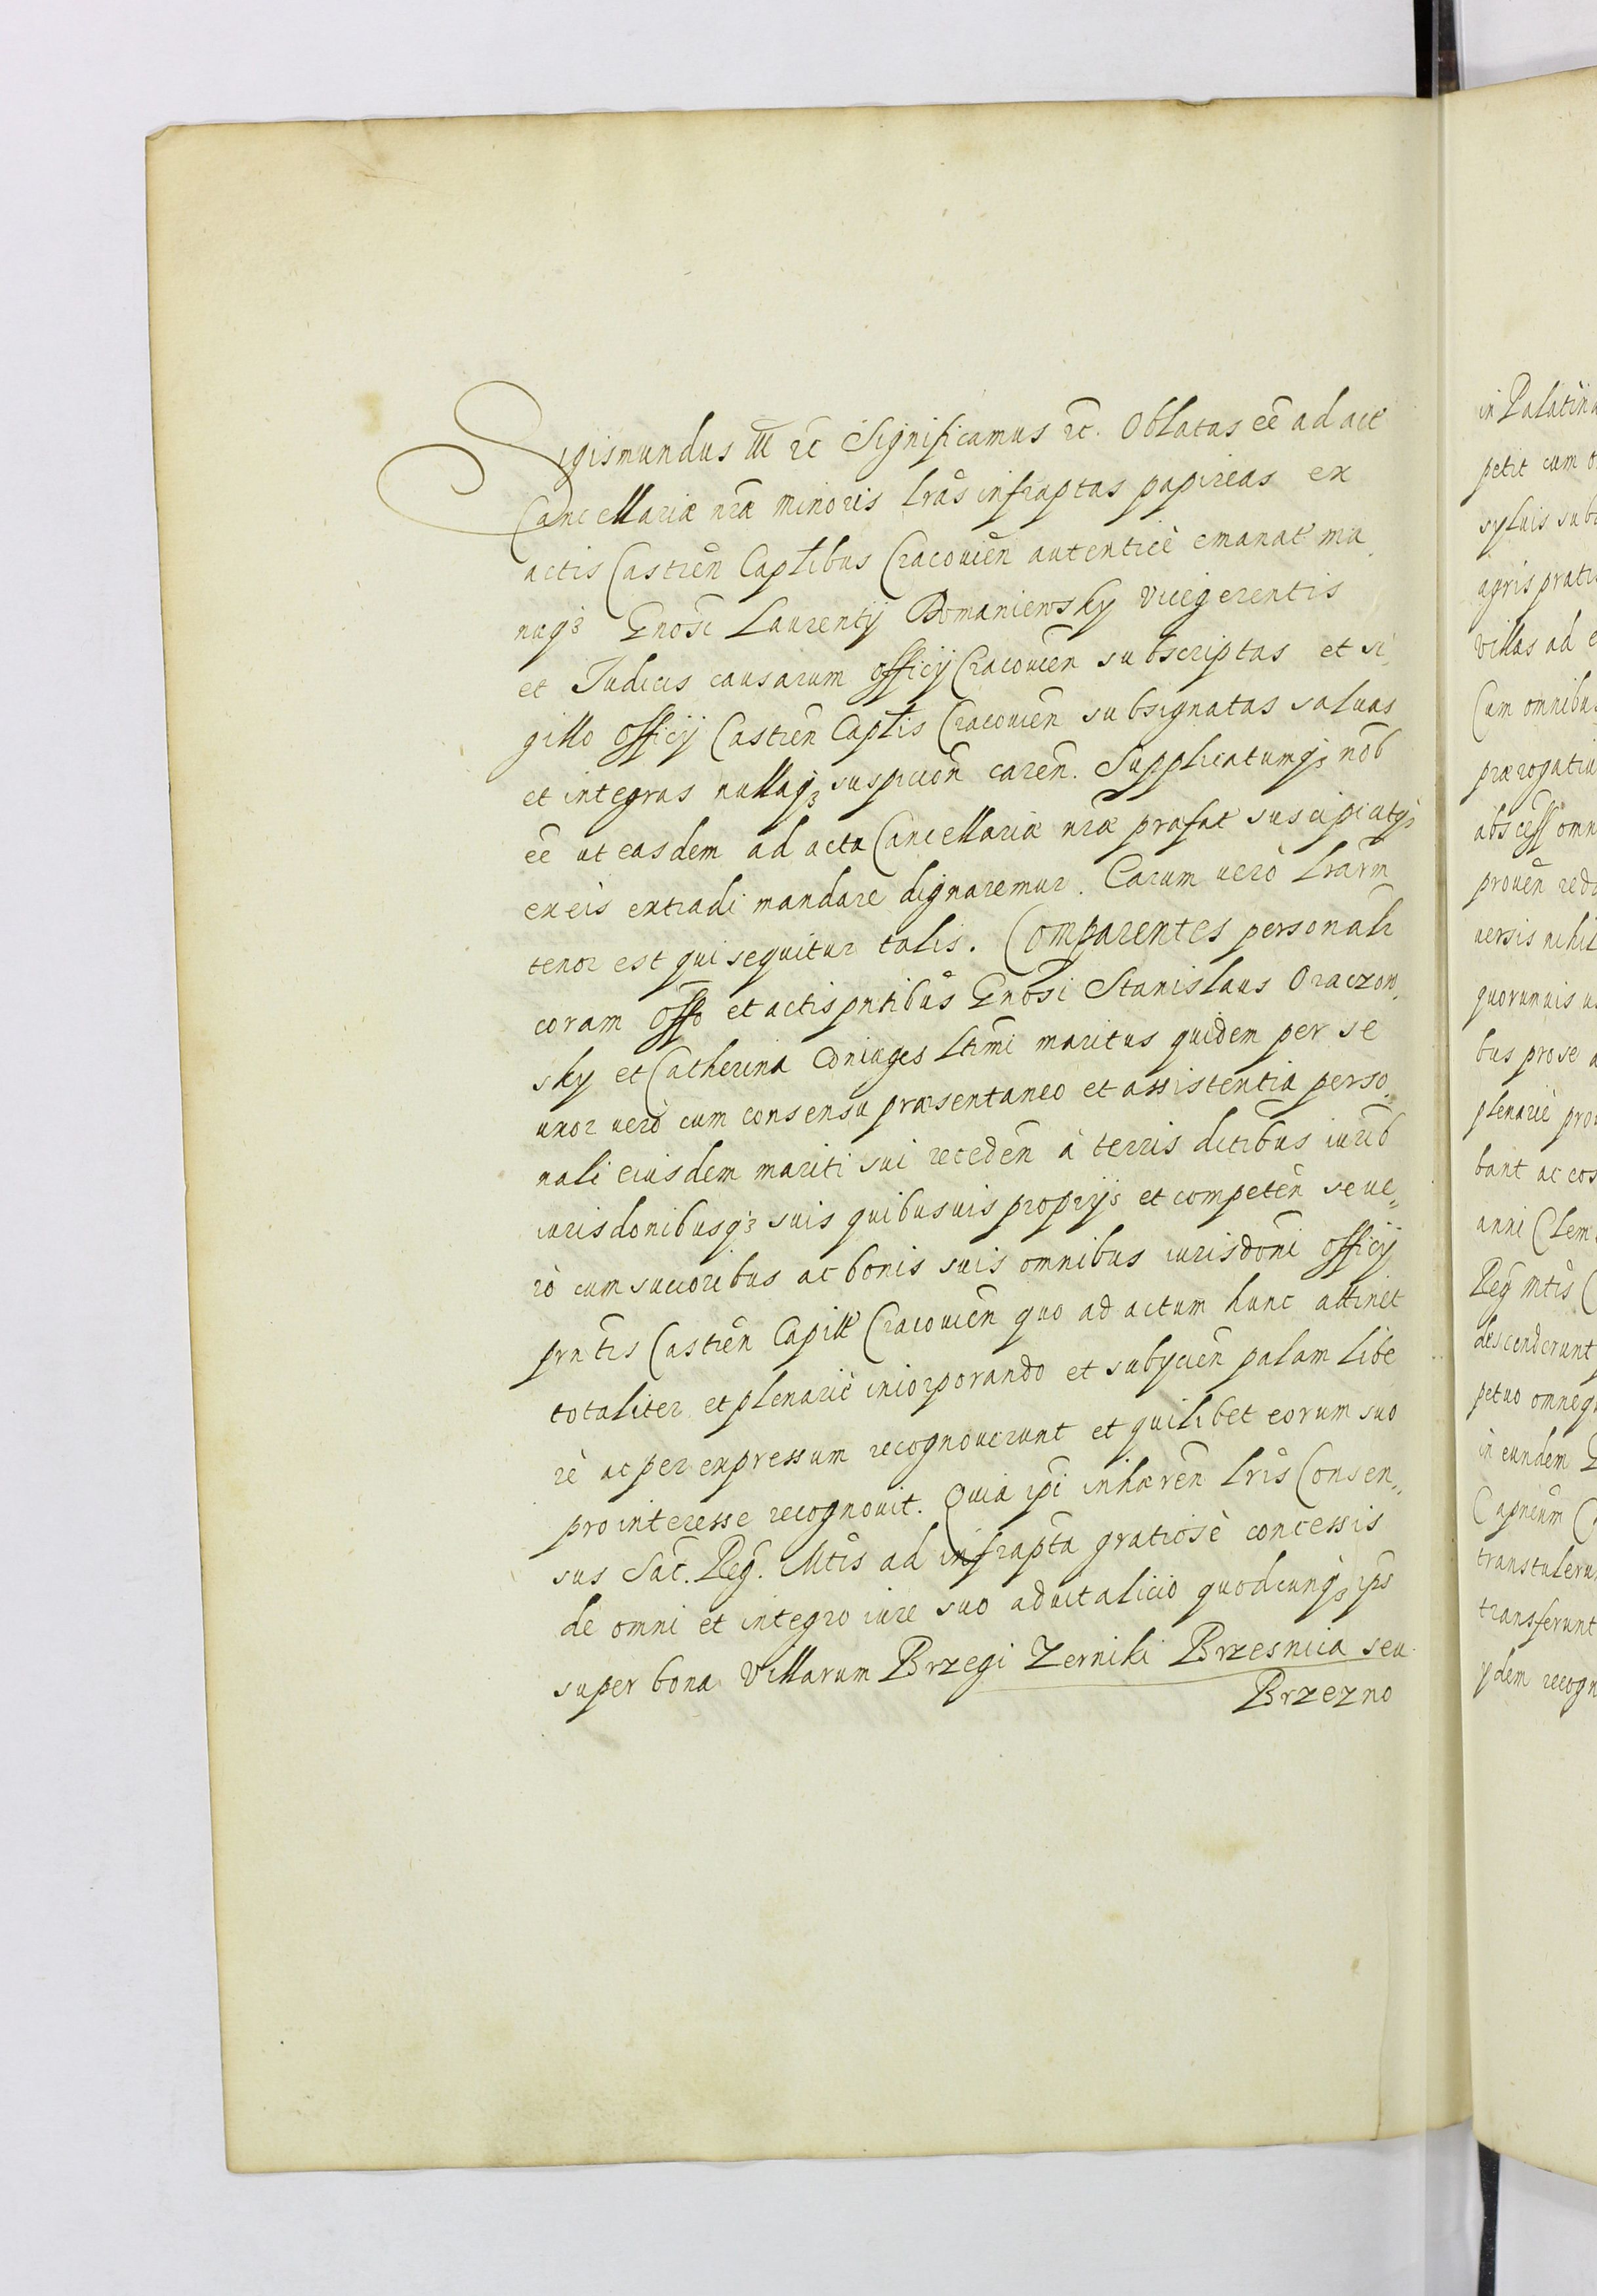 Sigismundus III ꝛc̃ Significamus ꝛc̃. Oblatas eẽ ad act̃
Cancellariæ nr̃æ minoris lr̃as infraptas papireas ex
actis Castreñ Captlibus Cracovieñ autenticè emanat̃ ma
nuqȝ Gñosi Laurentij Romaniewsky Vicegerentis
et Iudicis causarum officij Cracovieñ subscriptas et si,
gillo officij Castreñ Captlis Cracovieñ subsignatas salvas
et integras nullaqȝ suspicioñ careñ. Supplicatumqȝ nõb
eẽ ut easdem ad acta Cancellariæ nr̃æ præfat̃ suscipi atqȝ
ex eis extradi mandare dignaremur. Earum verò lr̃arm̃
tenor est qui sequitur talis. Comparentes personalr̃
coram offõ et actis pñtibus Gñosi Stanislaus Oraczow,
sky et Catherina Coniuges ltĩmi maritus quidem per se
uxor verò cum consensu præsentaneo et assistentia perso,
nali eiusdem mariti sui recedeñ à terris ditĩbus iurib̃
iurisdonibusqȝ suis quibusvis proprijs et competeñ se ve,,
rò cum succoribus ac bonis suis omnibus iurisdonĩ officij
prñtis Castreñ Capitt̃ Cracovieñ quo ad actum hunc attinet
totaliter et plenariè incorporando et subijcieñ palam libe
rè ac per expressum recognoverunt et quilibet eorum suo
pro interesse recognovit. Quia ip̃i inhæreñ lr̃is Consen,,
sus Sac̃. Reg̃. Mtĩs ad infrapta gratiosè concessis
de omni et integro iure suo advitalicio quodcunqȝ ip̃s
super bona Villarum Brzegi Zerniki Brzesnicia seu
Brzezno
in Palatina
petit cum
sylvis sub
agris prati
villas ad
Cum omnibu
prærogativ
abscess omn
proveñ red
versis nihil
quorumvis
bus pro se a
plenariè pro
bant ac eos
anni Clem
Reg̃ Mtĩs
descenderunt
petuo omneq
in eundem
transtuleru
transferunt
ydem recogn